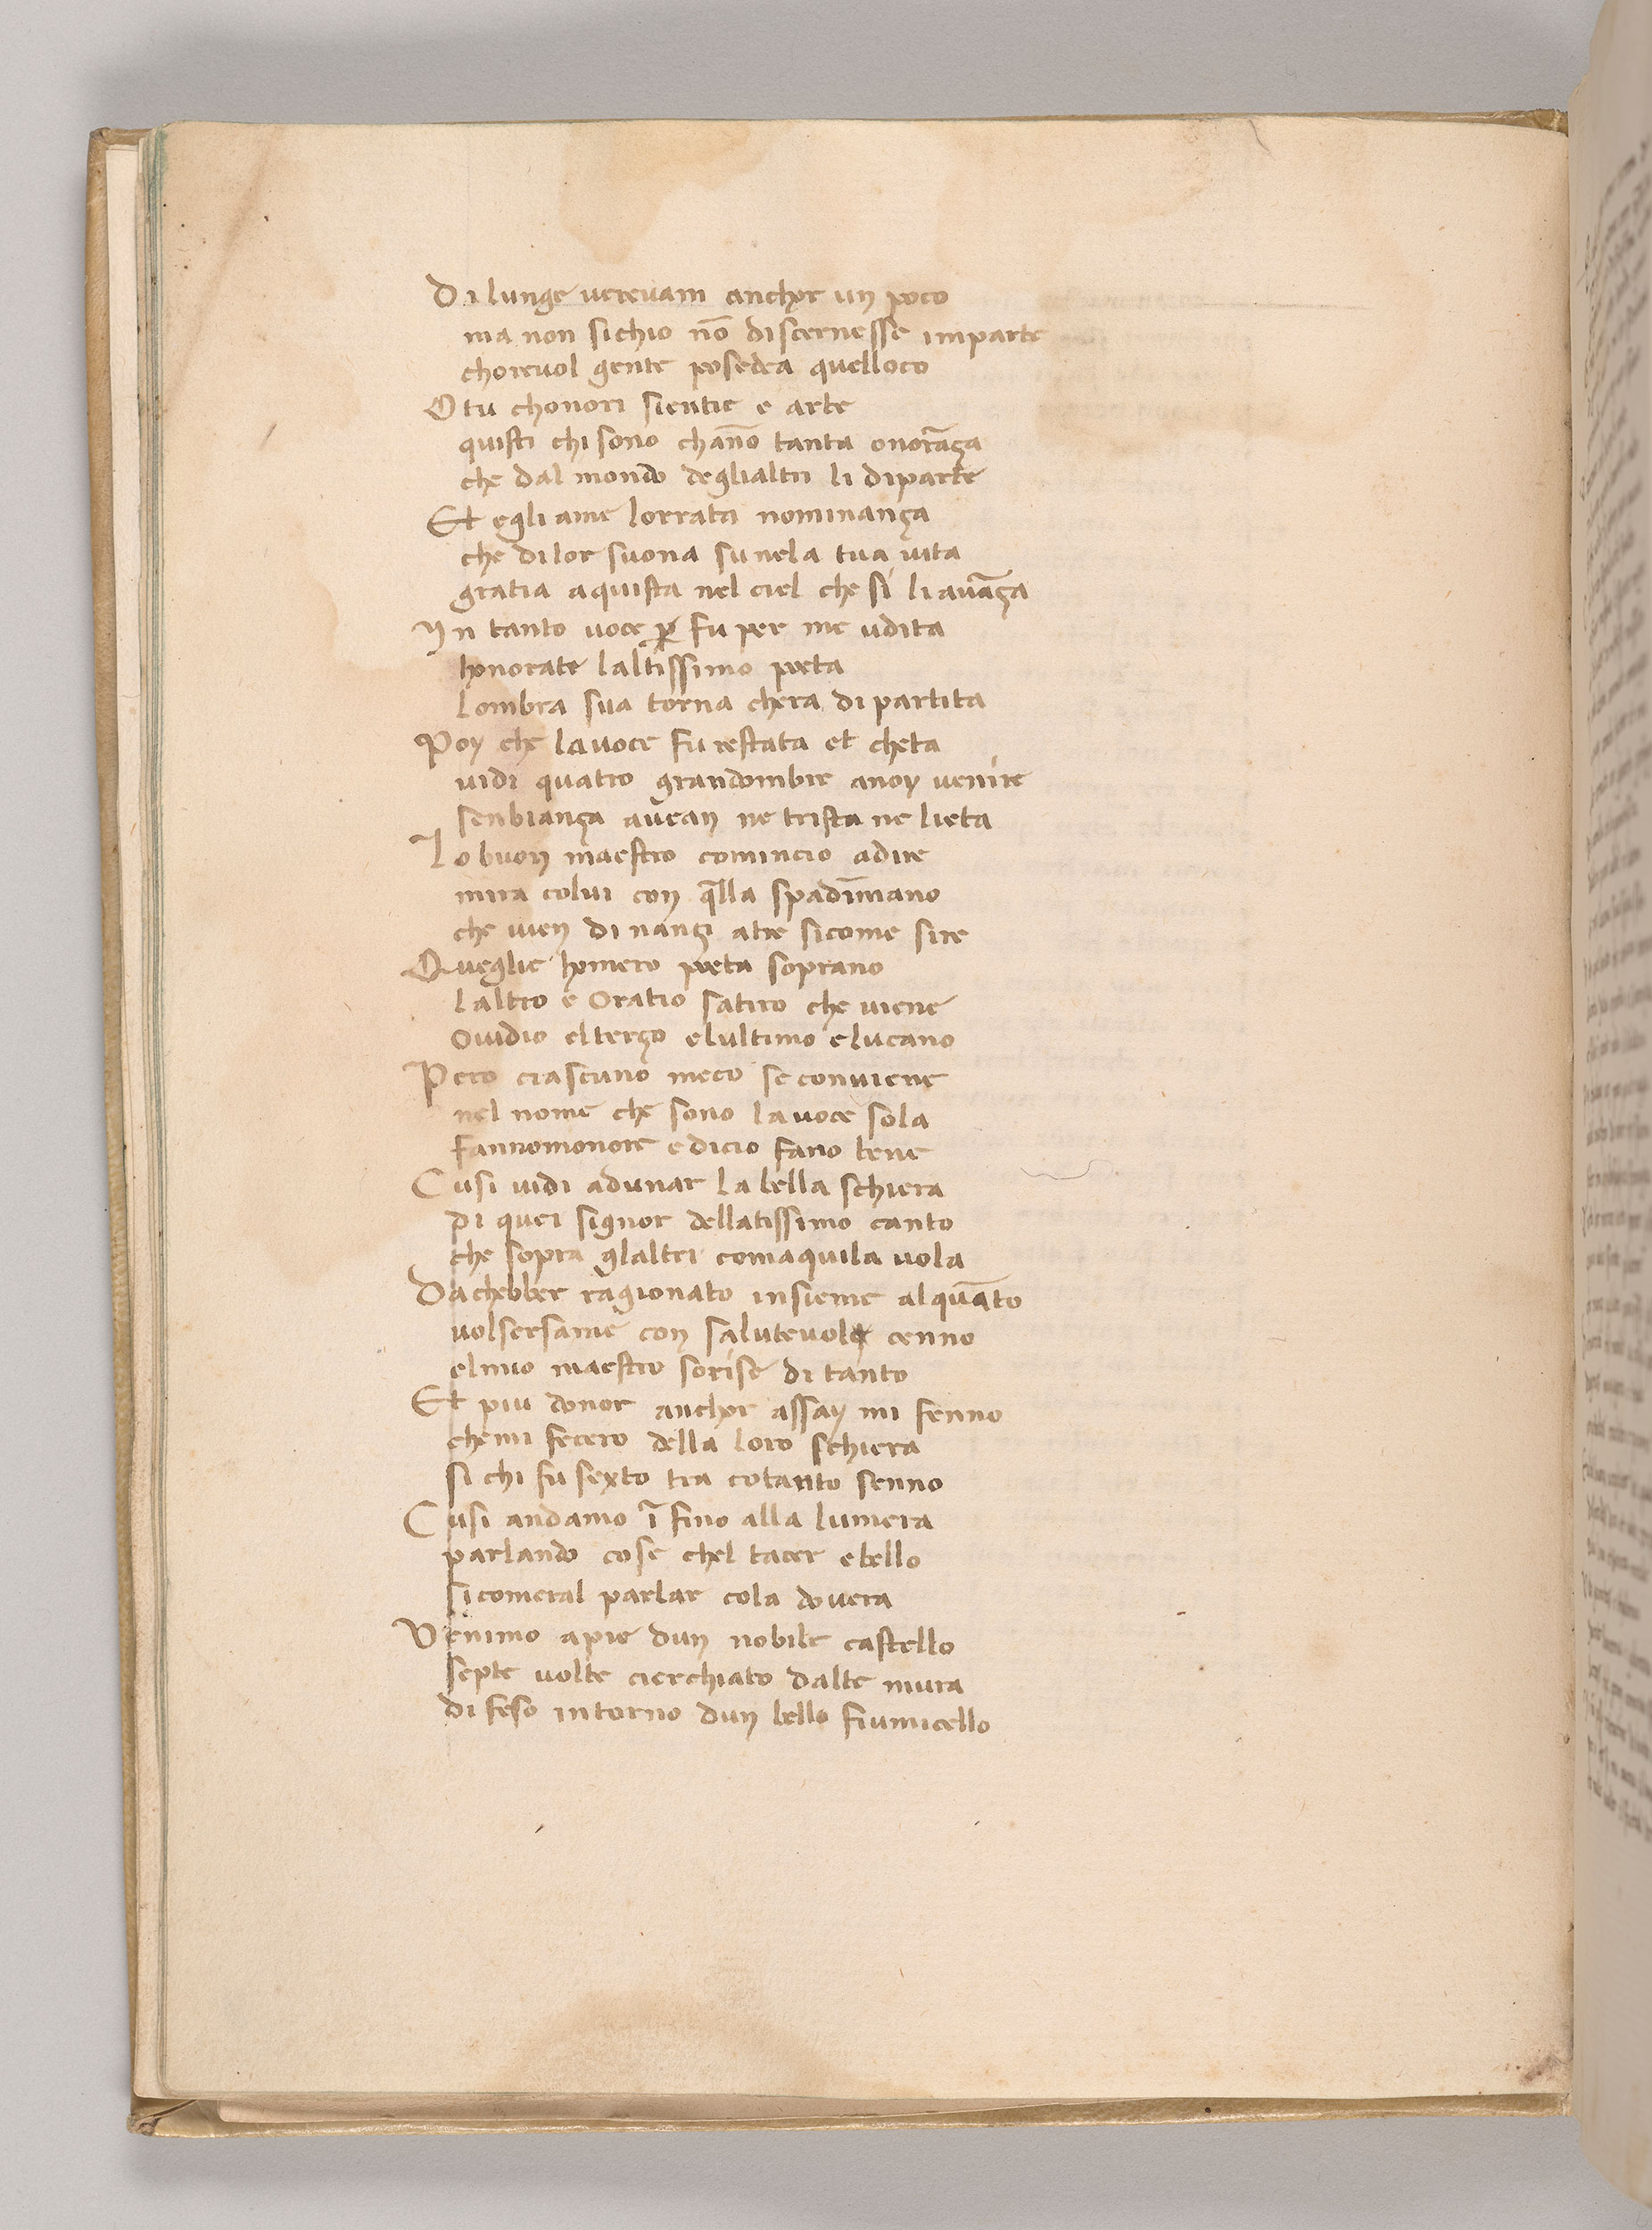 Di lunge uerauam anchor un poco
ma non sichio nō discernesse imparte
choreuol gente posedea quelloco
O tu chonori sientie e arte
quisti chi sono chāno tanta onorāça
che dal mondo deglialtri li diparte
Et egli ame lorrata nominança
che dilor suona sunela tua uita
gratia aquista nel ciel che si li auāça
Yn tanto uoce ꝑ fu per me udita
honorate laltissimo poeta
lombra sua torna chera di partita
Poy che lauoce fu restata et cheta
uidi quatro grandombre anoy uenire
senbiança auean ne trista ne lieta
Lo buon maestro comincio adire
mira colui con q̄lla spadīmano
che uien di nanzi atre sicome sire
Queglie homero poeta soprano
laltro e Oratio satiro che uiene
Ouidio elterço elultimo elucano
Pero ciascuno meco se conuiene
nel nome che sono lauoce sola
fannomonore e dicio fano bene
Cusi uidi adunar la bella schiera
di quei signor dellatissimo canto
che sopra glaltri comaquila uola
Dachebber ragionato insieme alquāto
uolsersame con saluteuole cenno
elmio maestro sorise di tanto
Et piu donor anchor assay mi fenno
chemi fecero della loro schiera
si chi fu sexto tra cotanto senno
Cusi andamo ī fino alla lumera
parlando cose chel tacer ebello
sicomeral parlar cola douera
Venimo apie dun nobile castello
septe uolte cierchiato dalte mura
difeso intorno dun bello fiumicello